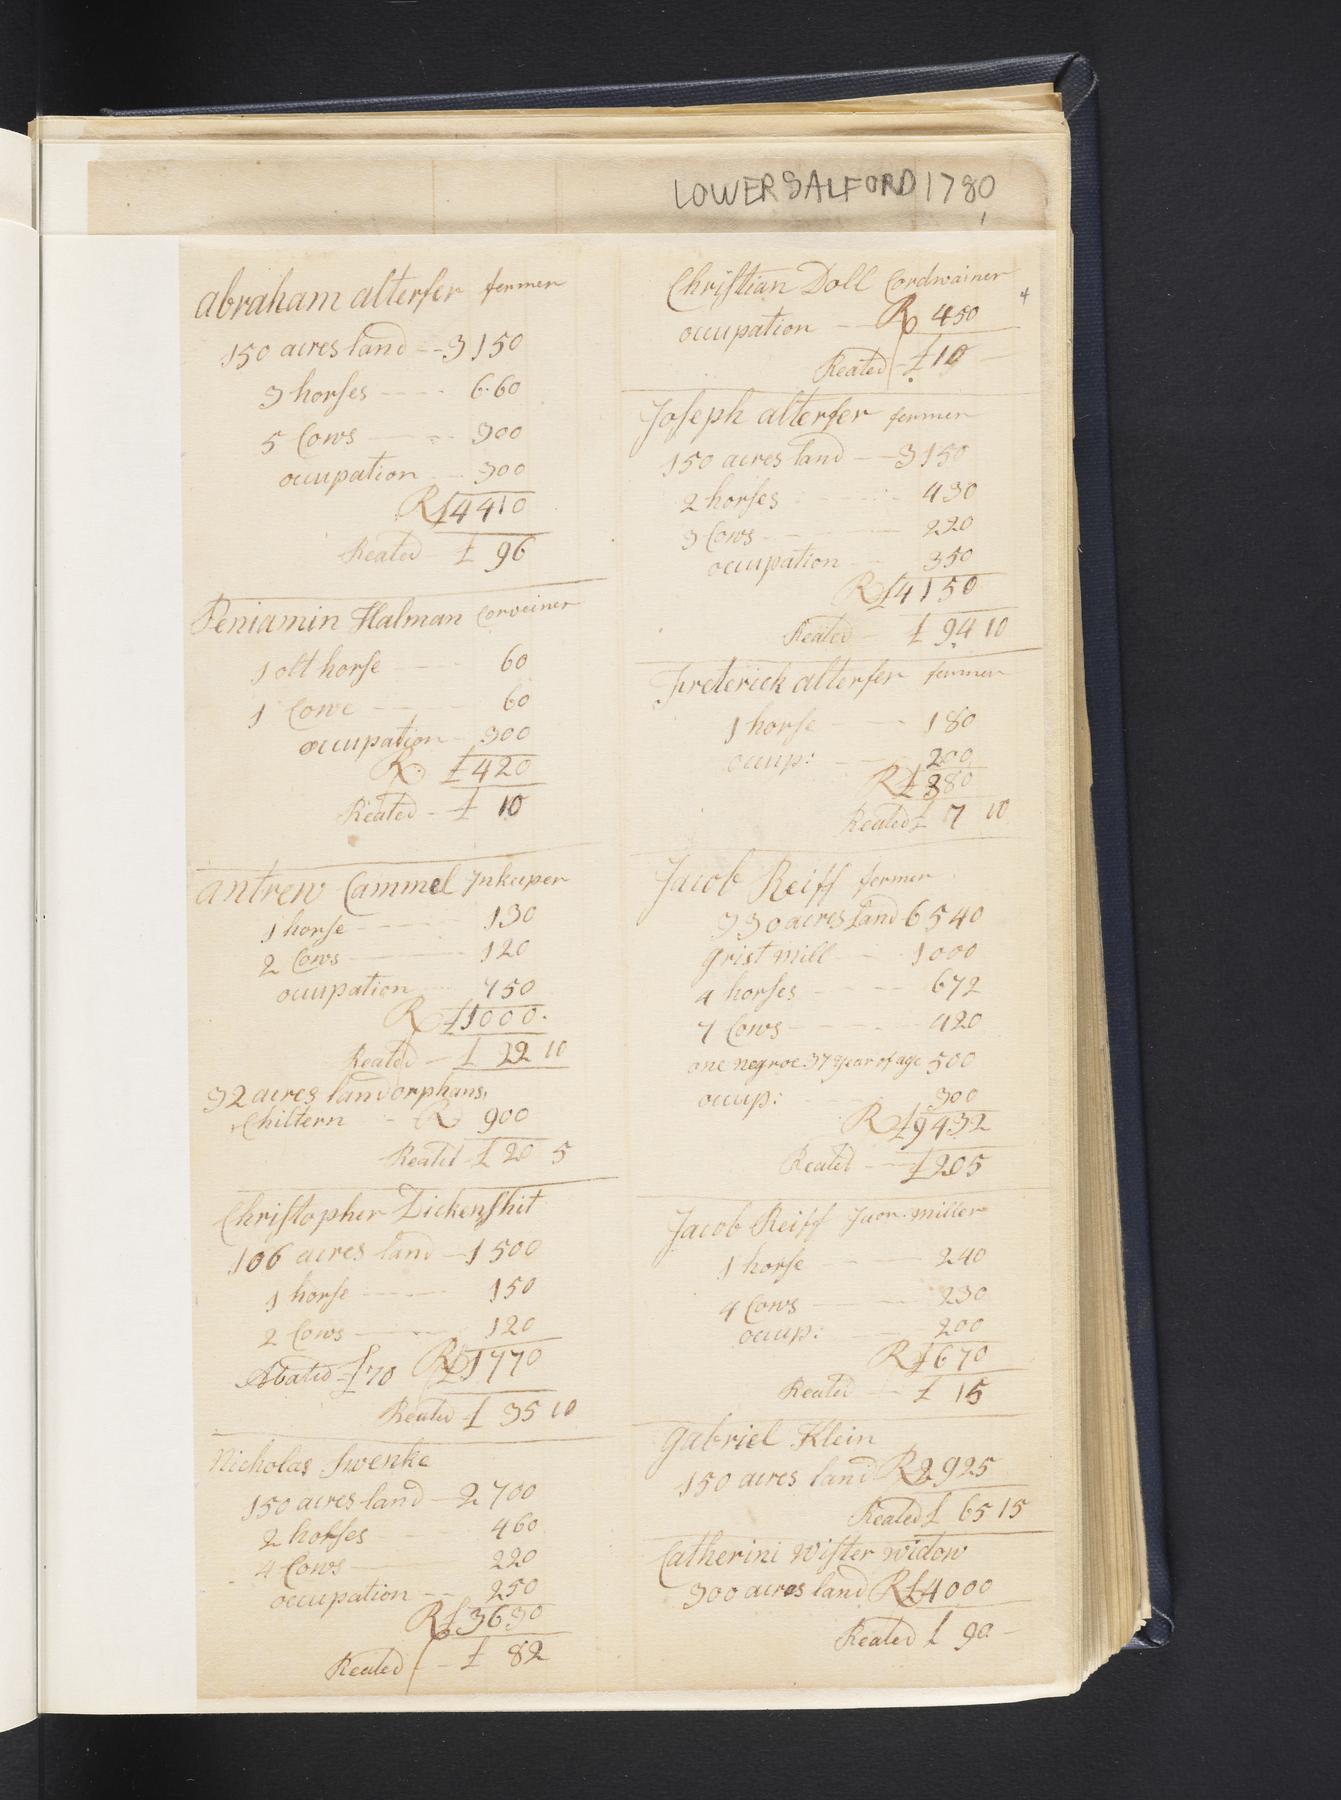 LOWER SALFORD 1780
abraham alterfer fermer
150 acres land 3150
3 horses 660
5 Cows 300
occupation 300
R £4410
Reated £ 96
Peniamin Halman Corveiner
1 olt horse 60
1 Cowe 60
occupation 300
R £420
Reated £ 10
antrew Cammel Inkeeper
1 horse 130
2 Cows 120
occupation 750
R £1000
Reated £ 22 10
32 acres land orphans
Chiltern R 900
Reated £ 20 5
Christopher Dickenshit
106 acres land 1500
1 horse 150
2 Cows 120
Abated £70 R £1770
Reated £ 35 10
Nicholas Swenke
150 acres land 2700
2 horses 460
4 Cows 220
occupation 250
R £3630
Reated £ 82
Christian Doll Cordwainer
occupation R 450
Reated £10
Joseph alterfer fermer
150 acres land 3150
2 horses 430
3 Cows 220
occupation 350
R £4150
Reated £ 94 10
Freterick alterfer fermer
1 horse 180
occup: 200
R £380
Reated £ 7 10
Jacob Reiff fermer
330 acres Land 6540
grist mill 1000
4 horses 672
7 Cows 420
one negroe 37 year of age 500
occup: 300
R £9432
Reated £205
Jacob Reiff Juor. miller
1 horse 240
4 Cows 230
occup: 200
R £670
Reated £ 15
gabriel Klein
150 acres land R 2925
Reated £ 65 15
Catherini Wister widow
300 acres land R £4000
Reated £ 90